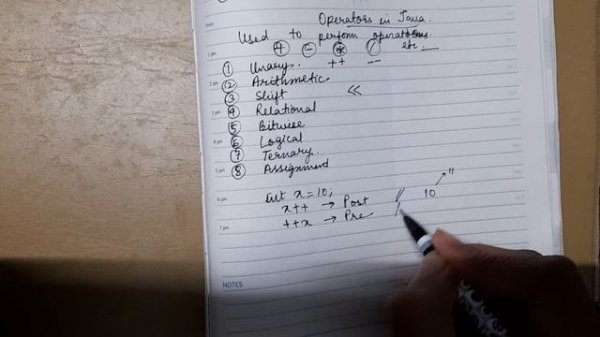 Operators in Java.
Used to perform operations
+ - * / etc.
1 Unary. ++ --
2 Arithmetic
3 Shift <<
4 Relational
5 Bitwise
6 Logical
7 Ternary.
8 Assignment
int x=10;
x++ → Post // 10 11
++x → Pre /
NOTES